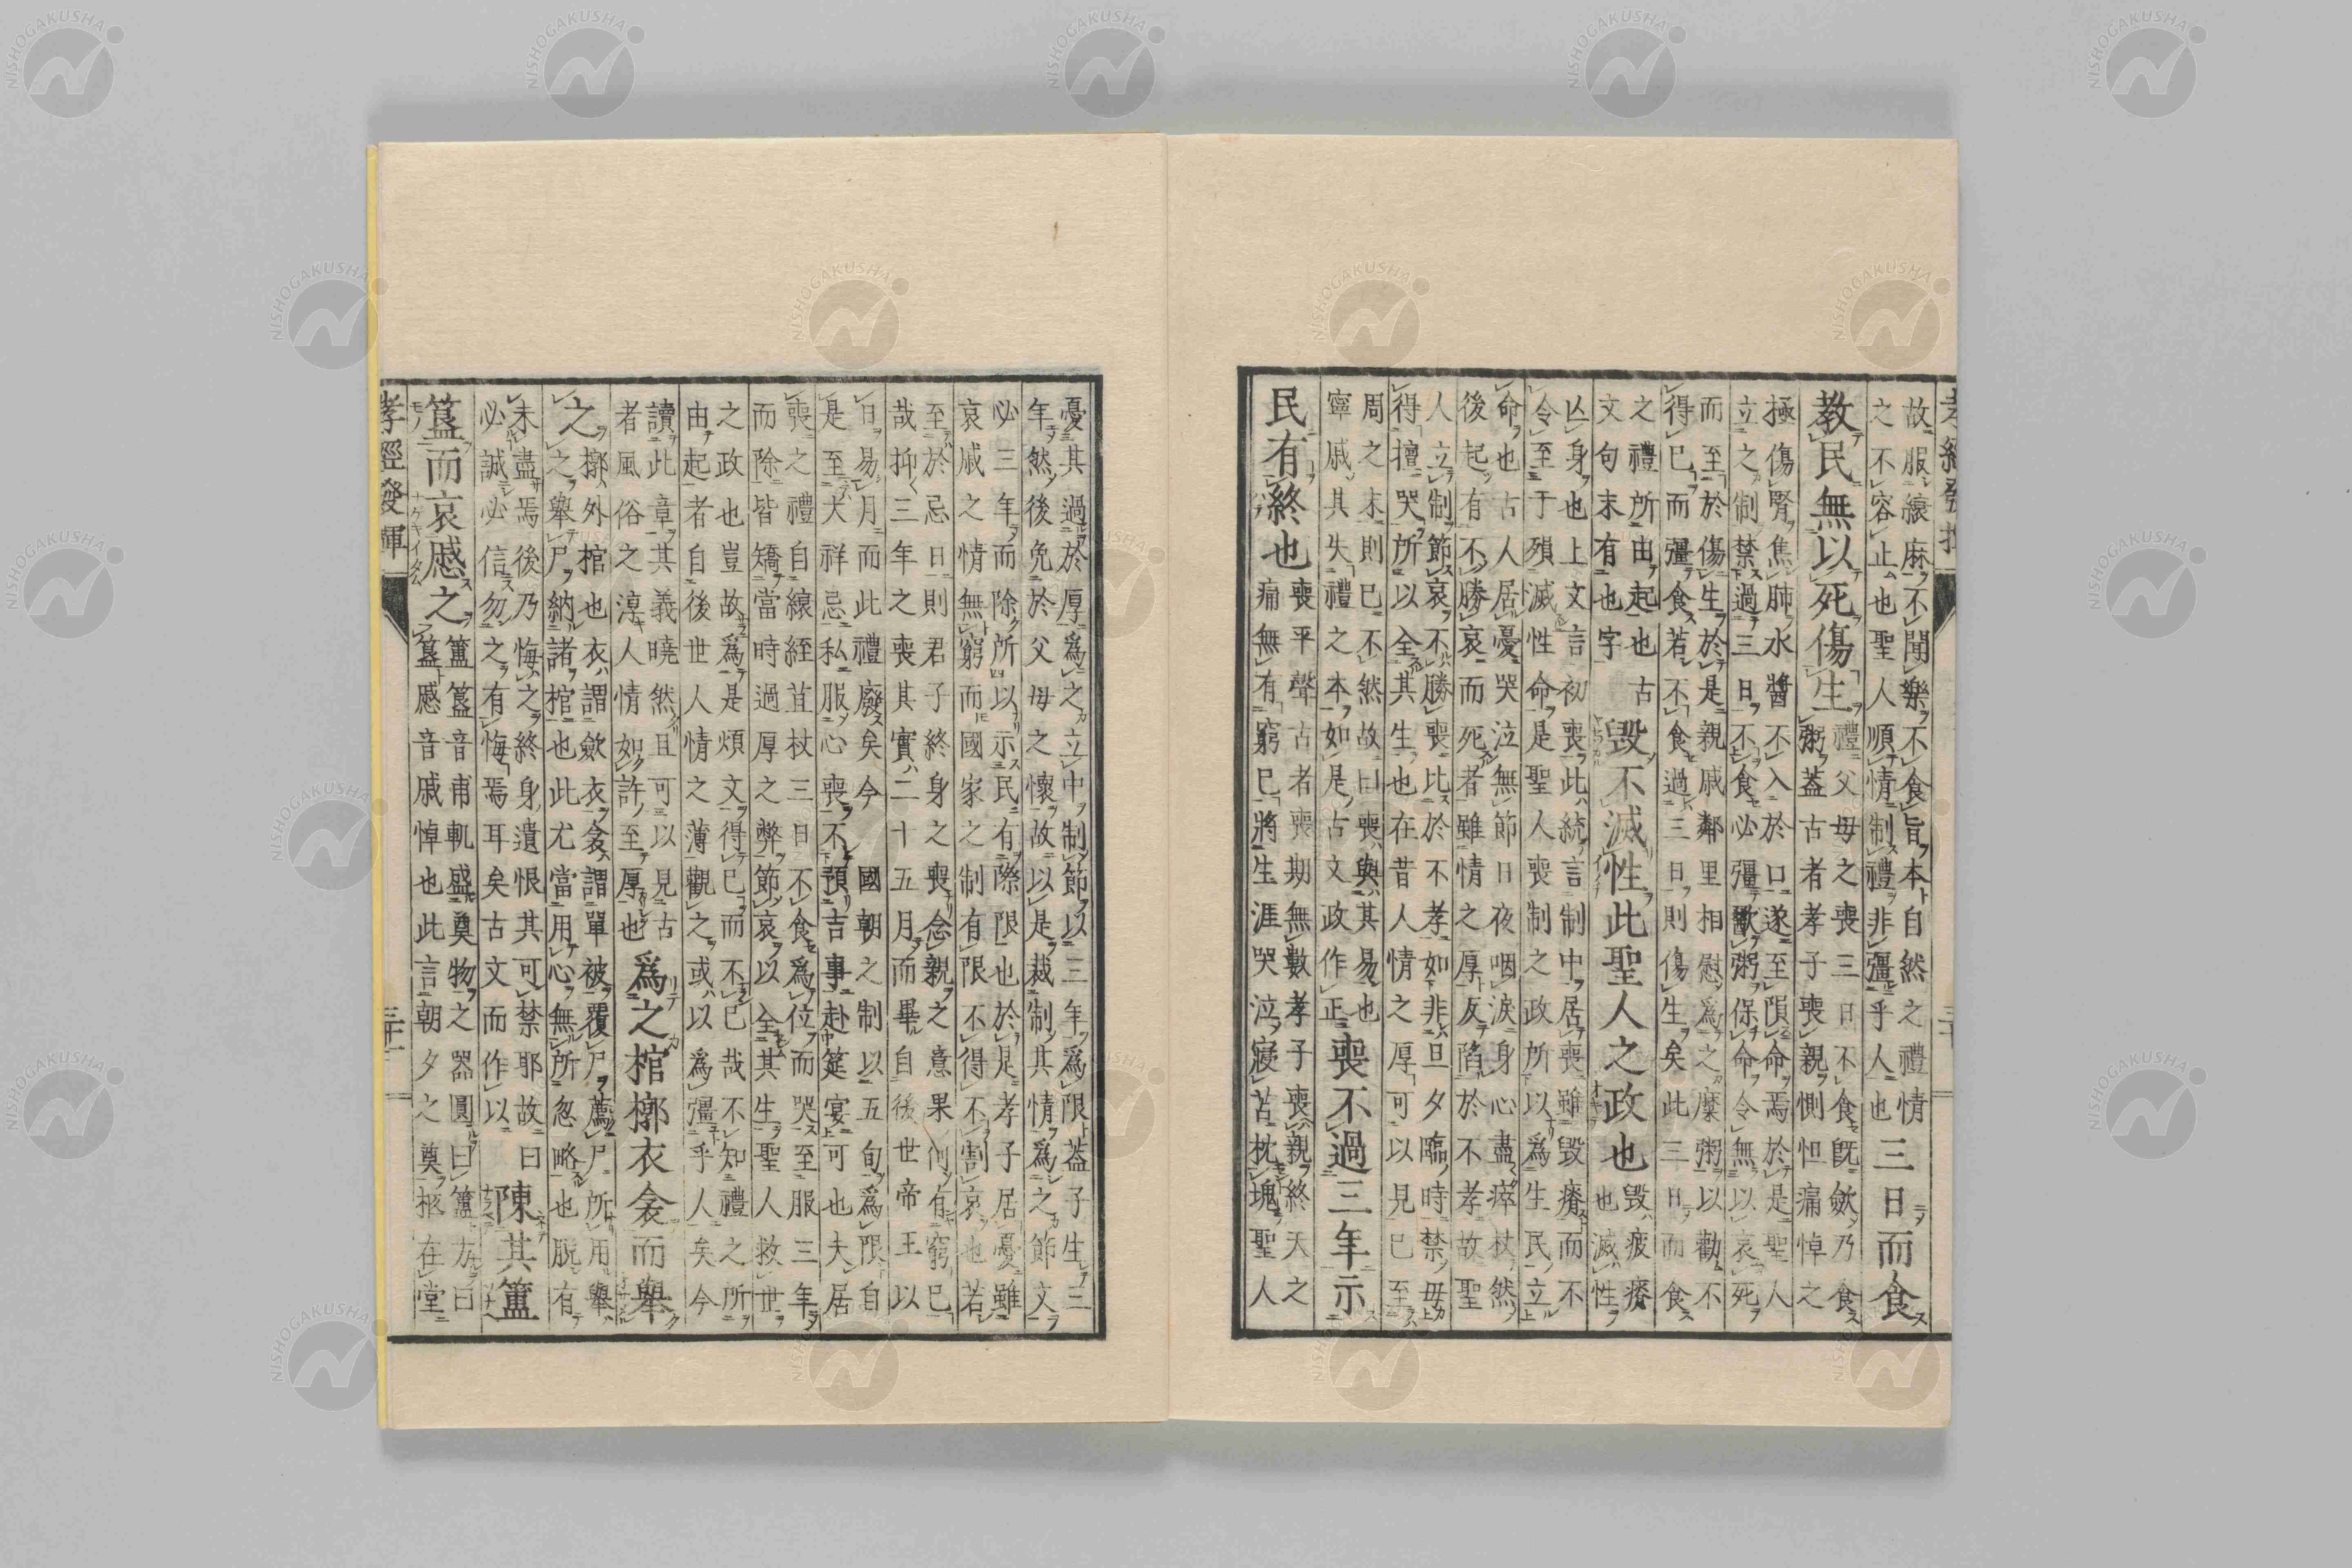 孝經發揮
故服縗麻不聞樂不食旨本自然之禮情
之不容止也聖人順情制禮非彊乎人也
三日而食
教民無以死傷生
禮父母之喪三日不食既斂乃食
粥蓋古者孝子喪親惻怛痛悼之
極傷腎焦肺水醬不入於口遂至隕命焉於是聖人
立之制禁過三日不食必彊歠粥保命令無以哀死
而至於傷生於是親戚鄰里相慰爲之糜粥以勸不
得已而彊食若不食過三日則傷生矣此三日而食
之禮所由起也古
文句末有也字
毀不滅性此聖人之政也
毀疲瘠
也滅性
亾身也上文言初喪此統言制中居喪雖毀瘠而不
令至于殞滅性命是聖人喪制之政所以爲生民立
命也古人居憂哭泣無節日夜咽淚身心盡瘁杖然
後起有不勝哀而死者雖情之厚反陷於不孝故聖
人立制節哀不勝喪比於不孝如非旦夕臨時禁毋
得擅哭所以全其生也在昔人情之厚可以見已至
周之末則已不然故曰喪與其易也
寧戚其失禮之本如是古文政作正
喪不過三年示
民有終也
喪平聲古者喪期無數孝子喪親終天之
痛無有窮已將生涯哭泣寢苫枕塊聖人
憂其過於厚爲之立中制節以三年爲限蓋子生三
年然後免於父母之懷故以是裁制其情爲之節文
必三年而除所以示民有際限也於是孝子居憂雖
哀戚之情無窮而國家之制有限不得不割哀也若
至於忌日則君子終身之喪念親之意果何有窮已
哉抑三年之喪其實二十五月而畢自後世帝王以
日易月而此禮廢矣今 國朝之制以五旬爲限自
是至大祥忌私服心喪不預吉事赴筵宴可也夫居
喪之禮自縗絰苴杖三日不食爲位而哭至服三年
而除皆矯當時過厚之弊節哀以全其生聖人救世
之政也豈故爲是煩文得已而不已哉不知禮之所
由起者自後世人情之薄觀之或以爲彊乎人矣今
讀此章其義曉然且可以見古
者風俗之淳人情如許至厚也
爲之棺槨衣衾而舉
之
槨外棺也衣謂斂衣衾謂單被覆尸薦尸所用舉
之舉尸納諸棺也此尤當用心無所忽略也脫有
未盡焉後乃悔之終身遺恨其可禁耶故曰
必誠必信勿之有悔焉耳矣古文而作以
陳其簠
簋而哀慼之
簠簋音甫軌盛奠物之器圓曰簠方曰
簋慼音戚悼也此言朝夕之奠柩在堂
孝經發揮
三十一